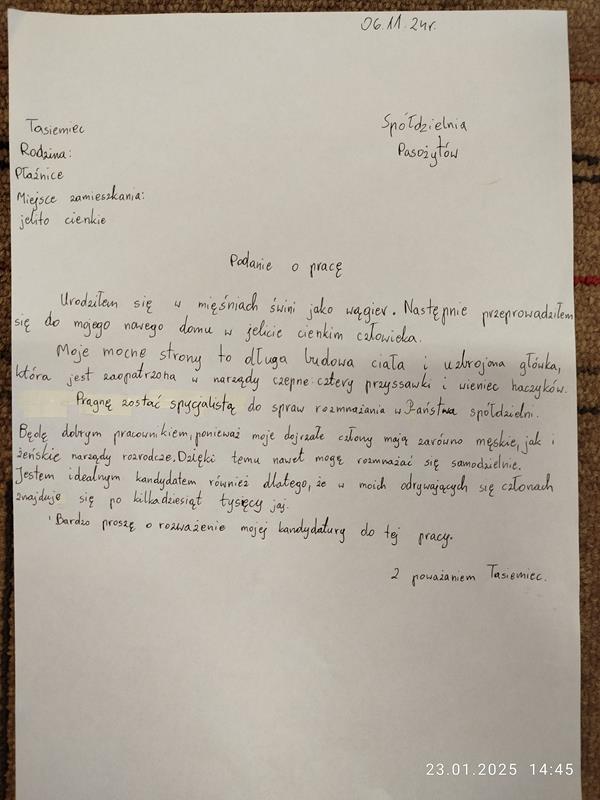 06.11.24r.
Tasiemiec
Rodzina:
Płaźnice
Miejsce zamieszkania:
jelito cienkie
Spółdzielnia
Pasożytów
Podanie o pracę
Urodziłem się w mięśniach świni jako wągier. Następnie przeprowadziłem
się do mojego nowego domu w jelicie cienkim człowieka.
Moje mocne strony to długa budowa ciała i uzbrojona główka,
która jest zaopatrzona w narządy czepne: cztery przyssawki i wieniec haczyków.
Pragnę zostać spycjalistą do spraw rozmnażania w Państwa spółdzielni.
Będę dobrym pracownikiem, ponieważ moje dojrzałe człony mają zarówno męskie, jak i
żeńskie narządy rozrodcze. Dzięki temu nawet mogę rozmnażać się samodzielnie.
Jestem idealnym kandydatem również dlatego, że w moich odrywających się członach
znajduje się po kilkadziesiąt tysięcy jaj.
Bardzo proszę o rozważenie mojej kandydatury do tej pracy.
Z poważaniem Tasiemiec.
23.01.2025 14:45